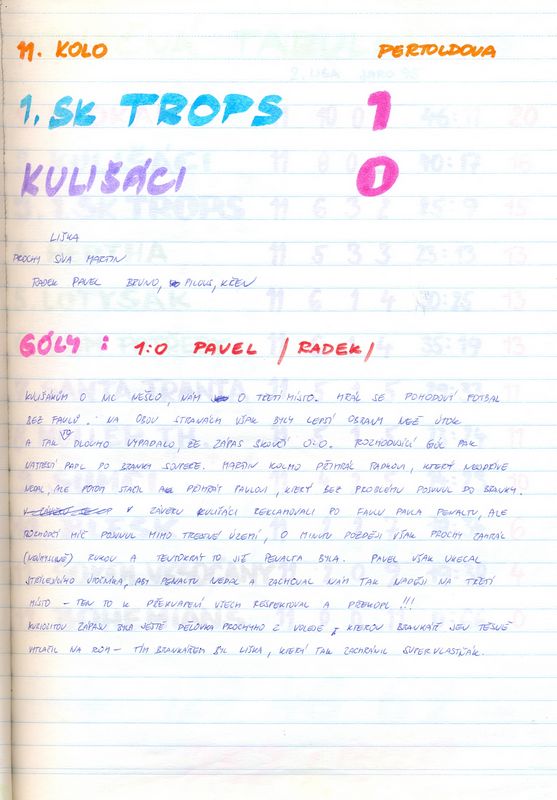 11. KOLO PERTOLDOVA
1. SK TROPS 1
KULIŠÁCI 0
LIŠKA
PROCHY SÍVA MARTIN
RADEK PAVEL BRUNO, PILOUS, KŘEN
GÓLY : 1:0 PAVEL /RADEK/
KULIŠÁKŮM O NIC NEŠLO, NÁM O TŘETÍ MÍSTO. HRÁL SE POHODOVÝ FOTBAL
BEZ FAULŮ. NA OBOU STRANÁCH VŠAK BYLY LEPŠÍ OBRANY NEŽ ÚTOK
A TAK TO DLOUHO VYPADALO, ŽE ZÁPAS SKONČÍ 0:0. ROZHODUJÍCÍ GÓL PAK
NATŘESTÍ PADL DO BRANKY SOUPEŘE. MARTIN KOLMO PŘIHRÁL RADKOVI, KTERÝ NEJDŘÍVE
NEDAL, ALE POTOM STAČIL PŘIHRÁT PAVLOVI, KTERÝ BEZ PROBLÉMU POSUNUL DO BRANKY.
V ZÁVĚRU KULIŠÁCI REKLAMOVALI PO FAULU PAVLA PENALTU, ALE
ROZHODČÍ MÍČ POSUNUL MIMO TRESTNÉ ÚZEMÍ, O MINUTU POZDĚJI VŠAK PROCHY ZAHRÁL
(NEÚMYSLNĚ) RUKOU A TENTOKRÁT TO JIŽ PENALTA BYLA. PAVEL VŠAK UKECAL
STŘÍLEJÍCÍHO ÚTOČNÍKA, ABY PENALTU NEDAL A ZACHOVAL NÁM TAK NADĚJI NA TŘETÍ
MÍSTO - TEN TO K PŘEKVAPENÍ VŠECH RESPEKTOVAL A PŘEKOPL !!!
KURIOZITOU ZÁPASU BYLA JEŠTĚ DĚLOVKA PROCHYHO Z VOLEJE, KTEROU BRANKÁŘ JEN TĚSNĚ
VYTLAČIL NA ROH - TÍM BRANKÁŘEM BYL LIŠKA, KTERÝ TAK ZACHRÁNIL SUPER VLASTŇÁK.